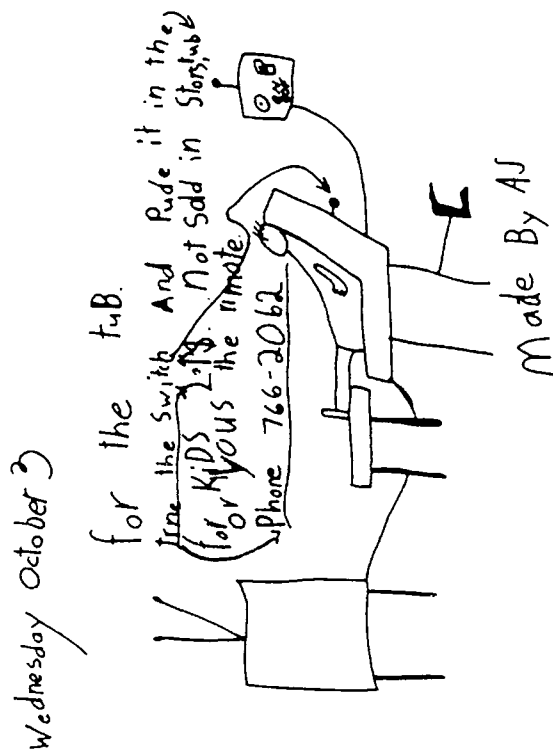 Wednesday October 3
for the tuB.
trne the Switch And Pude it in the
for KiDS 2.18. not Sdd in Storstub
or yous the rimate
Phone 766-2062
Made By AJ